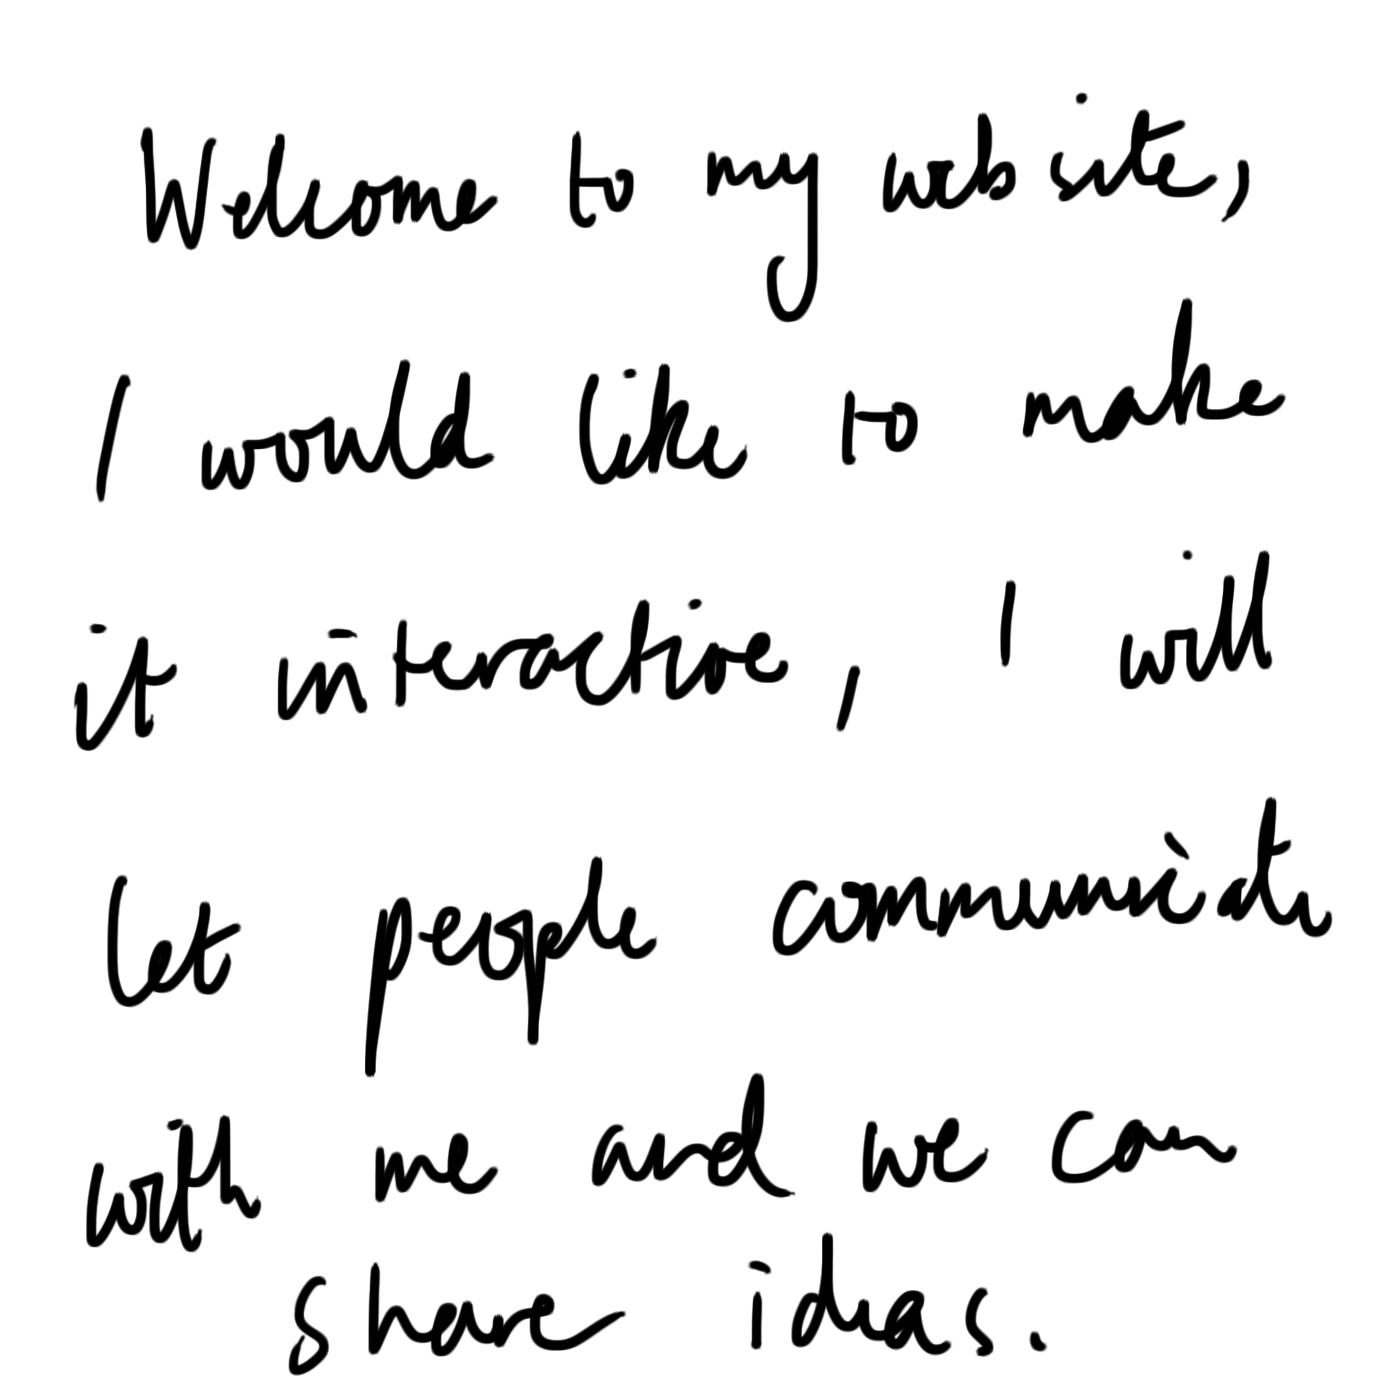 Welcome to my website,
I would like to make
it interactive, I will
let people communicate
with me and we can
share ideas.